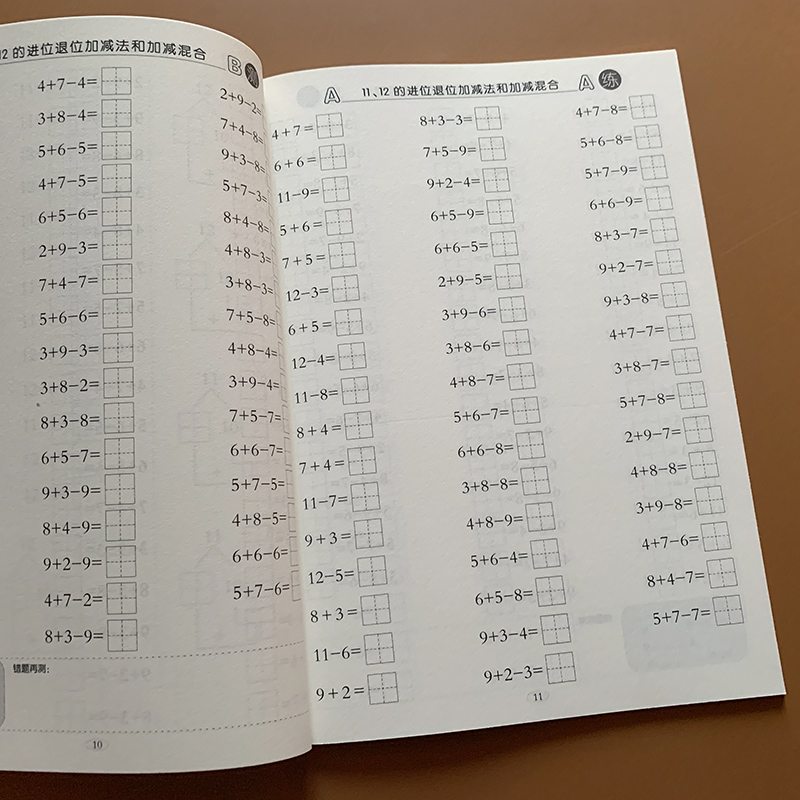 12 的进位退位加减法和加减混合
B 测
4+7−4=
3+8−4=
5+6−5=
4+7−5=
6+5−6=
2+9−3=
7+4−7=
5+6−6=
3+9−3=
3+8−2=
8+3−8=
6+5−7=
9+3−9=
8+4−9=
9+2−9=
4+7−2=
8+3−9=
2+9−2=
7+4−8=
9+3−8=
5+7−3=
8+4−8=
4+8−3=
3+8−3=
7+5−8=
4+8−4=
3+9−4=
7+5−7=
6+6−7=
5+7−5=
4+8−5=
6+6−6=
5+7−6=
错题再测:
10
A
11、12 的进位退位加减法和加减混合
A 练
4+7=
6+6=
11−9=
5+6=
7+5=
12−3=
6+5=
12−4=
11−8=
8+4=
7+4=
11−7=
9+3=
12−5=
8+3=
11−6=
9+2=
8+3−3=
7+5−9=
9+2−4=
6+5−9=
6+6−5=
2+9−5=
3+9−6=
3+8−6=
4+8−7=
5+6−7=
6+6−8=
3+8−8=
4+8−9=
5+6−4=
6+5−8=
9+3−4=
9+2−3=
4+7−8=
5+6−8=
5+7−9=
6+6−9=
8+3−7=
9+2−7=
9+3−8=
4+7−7=
3+8−7=
5+7−8=
2+9−7=
4+8−8=
3+9−8=
4+7−6=
8+4−7=
5+7−7=
11